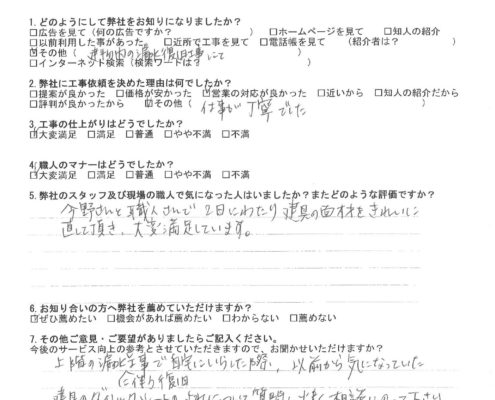 1. どのようにして弊社をお知りになりましたか?
□広告を見て(何の広告ですか? ) □ホームページを見て □知人の紹介
□以前利用した事があった □近所で工事を見て □電話帳を見て (紹介者は? )
☑その他( 建物内の漏水復旧工事にて
□インターネット検索(検索ワードは? )
2. 弊社に工事依頼を決めた理由は何でしたか?
□提案が良かった □価格が安かった ☑営業の対応が良かった □近いから □知人の紹介だから
□評判が良かったから ☑その他( 仕事が丁寧でした )
3. 工事の仕上がりはどうでしたか?
☑大変満足 □満足 □普通 □やや不満 □不満
4. 職人のマナーはどうでしたか?
☑大変満足 □満足 □普通 □やや不満 □不満
5. 弊社のスタッフ及び現場の職人で気になった人はいましたか?またどのような評価ですか?
今野さんと職人さんで2日にわたり建具の面材をきれいに
直して頂き、大変満足しています。
6. お知り合いの方へ弊社を薦めていただけますか?
☑ぜひ薦めたい □機会があれば薦めたい □わからない □薦めない
7. その他ご意見・ご要望がありましたらご記入ください。
今後のサービス向上の参考とさせていただきますので、お聞かせいただけますか?
上階の漏水工事で自宅にいらした際、以前から気になっていた
に伴う復旧
建具の